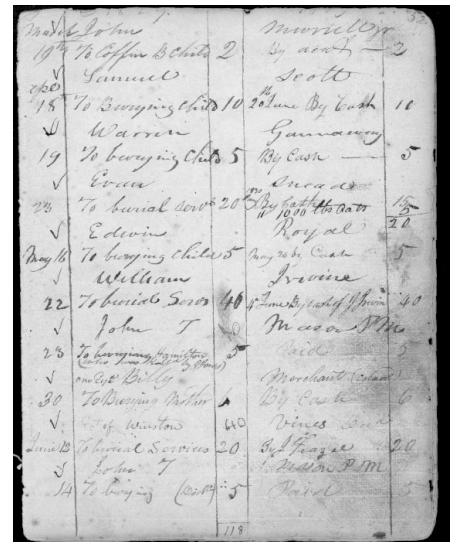 March John Murrell Jr 52
19th To Coffin B Child 2 By acct — 2
Samuel Scott
Apl
18 To Burying Child 10 20th June By Cash 10
Warren Gannaway
19 To burying Child 5 By Cash — 5
Evan Snead
23 To burial serv 20 By Cash 15
" 1000 lbs Oats 5
20
Edwin Royal
May 16 To burying Child 5 May 20 by Cash 5
William Irvine
22 To burial Servs 40 June By cash of J Irvine 40
John T Mason P M
23 To burying Hamilton 5 Paid
Billy Merchant
30 To Burying Mother 6 By Cash 6
of Winston 40 Vines
June 13 To burial Services 20 By J Frazel 20
John T Mason P M
14 To burying 5 Paid 5
118